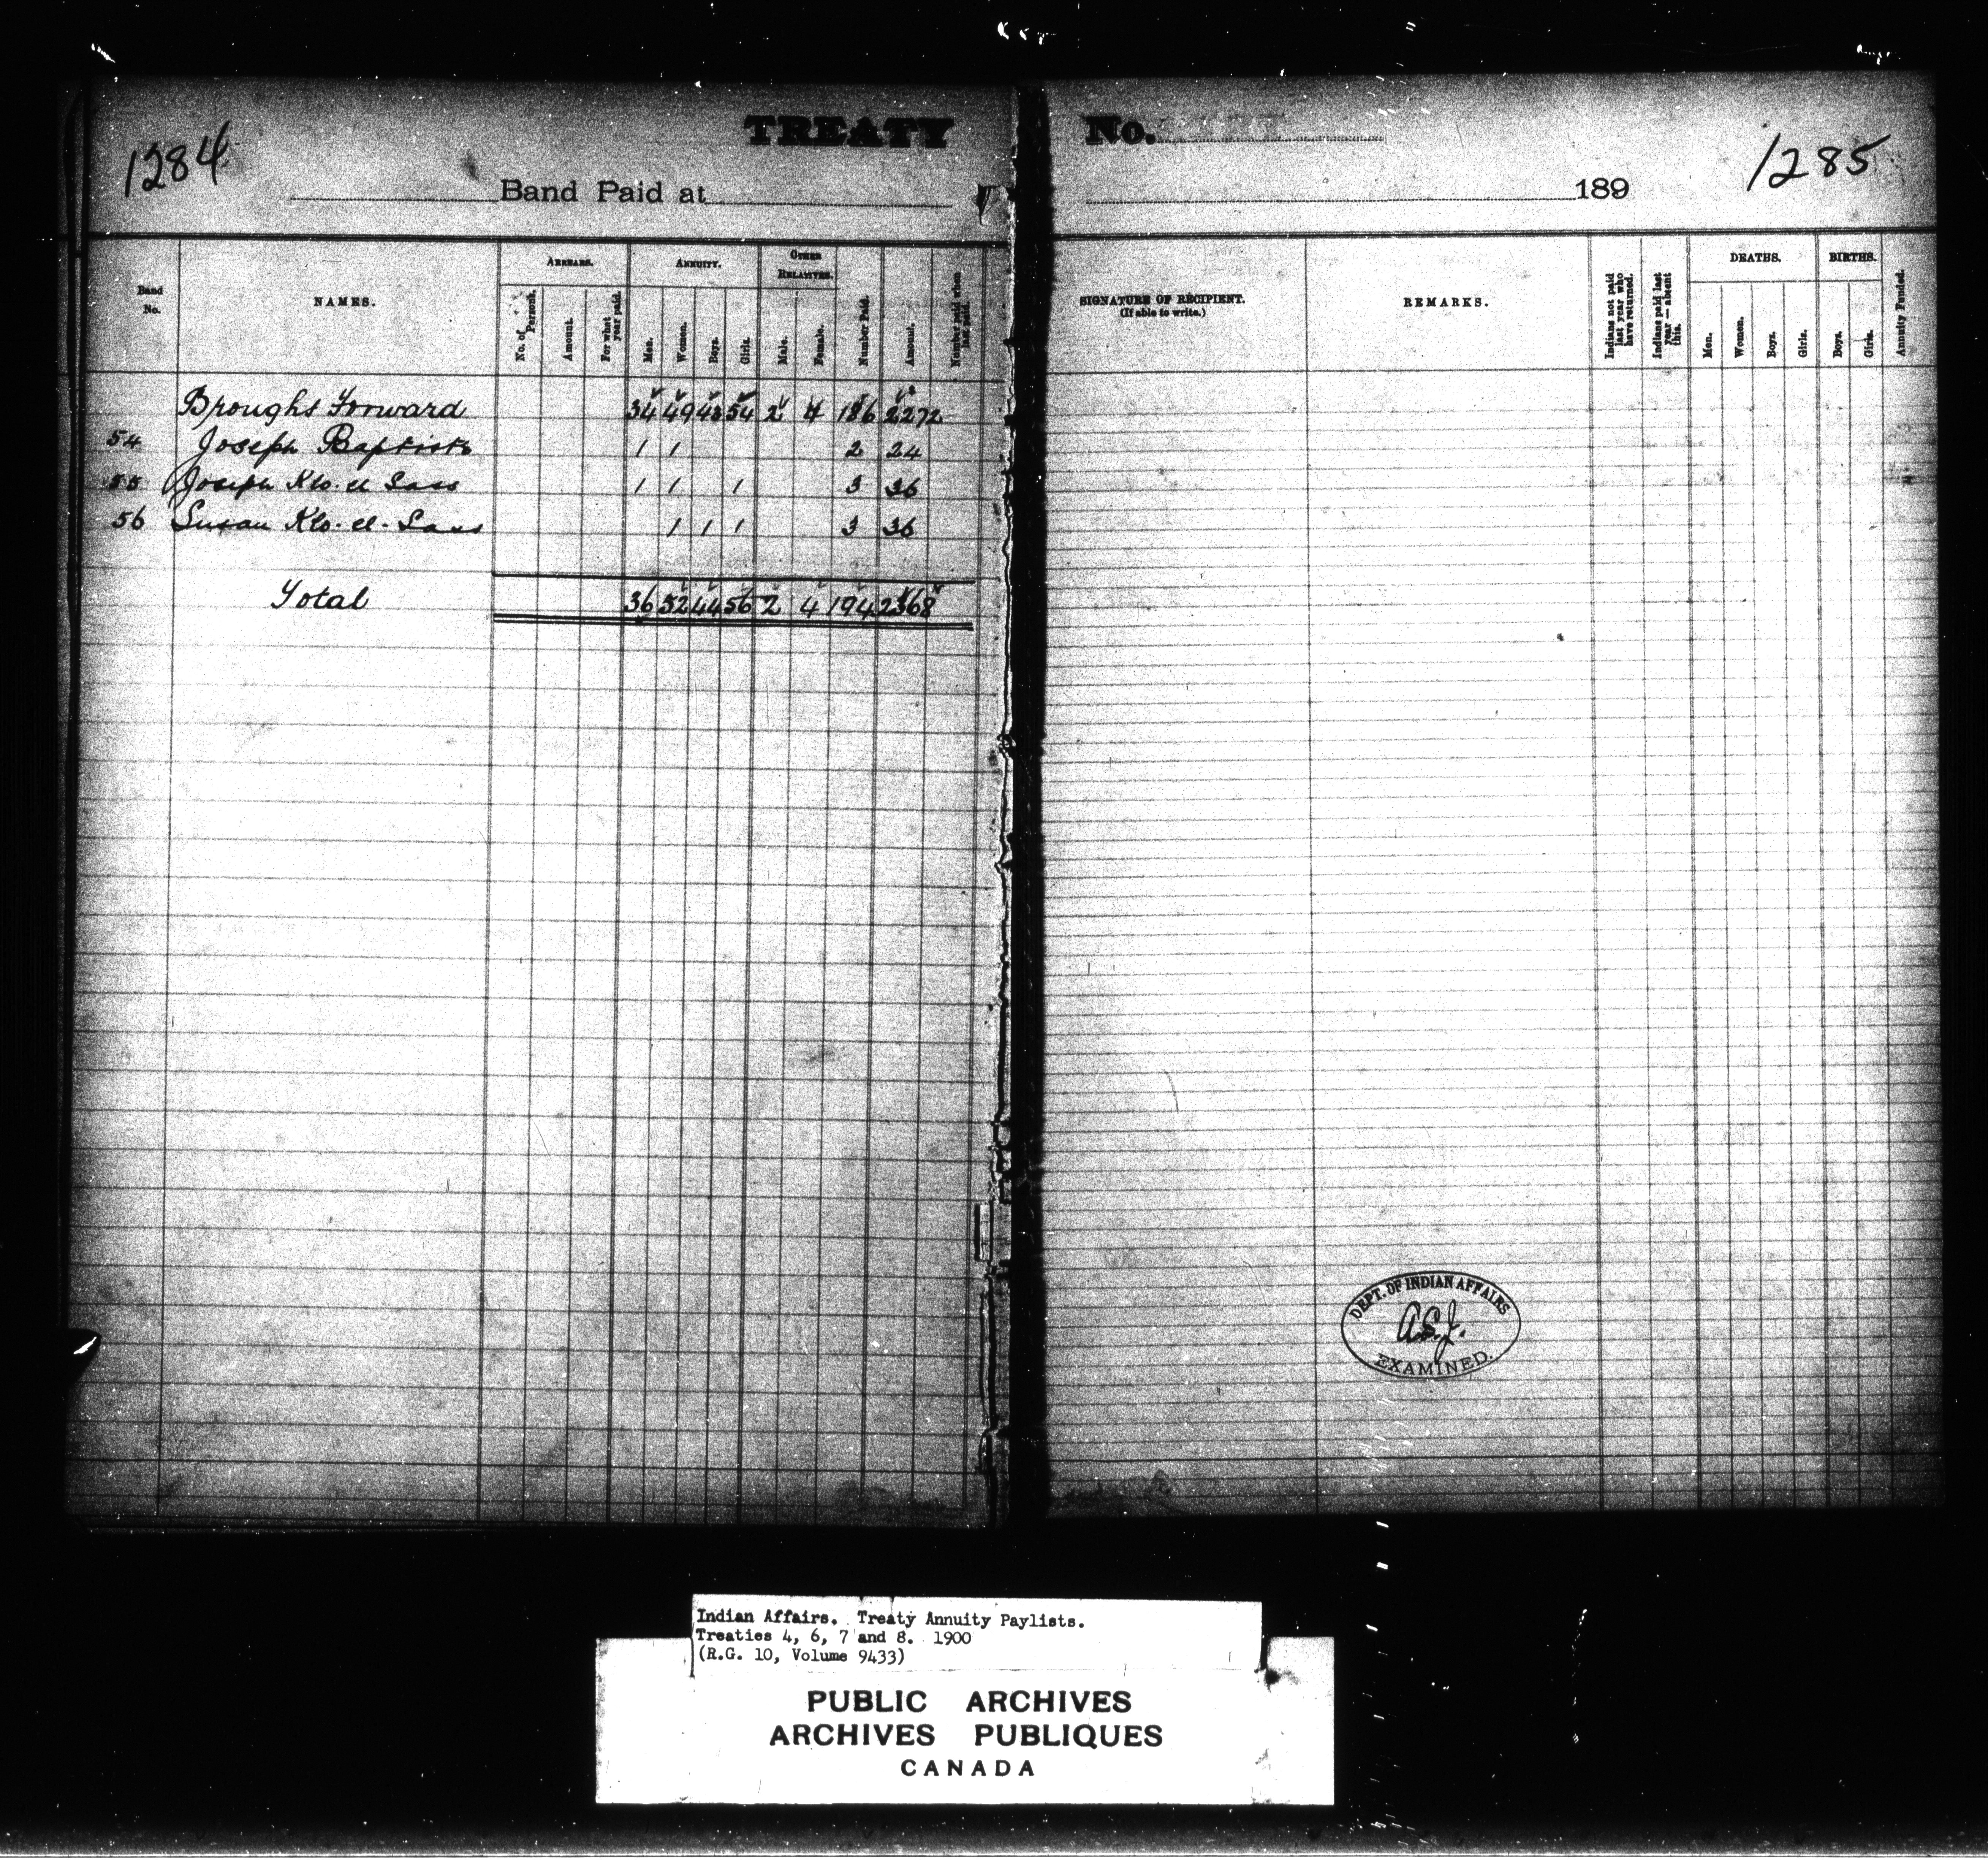 1284
TREATY No.
1285
Band Paid at
189
Band No.
NAMES.
ARREARS.
No. of Persons.
Amount.
For what year paid.
ANNUITY.
Men.
Women.
Boys.
Girls.
OTHER RELATIVES.
Male.
Female.
Number Paid.
Amount.
Number paid when last paid.
SIGNATURE OF RECIPIENT.
(If able to write.)
REMARKS.
Indians not paid last year who have returned.
Indians paid last year — absent this.
DEATHS.
Men.
Women.
Boys.
Girls.
BIRTHS.
Boys.
Girls.
Annuity Funded.
Brought Forward 34 49 43 54 2 4 186 2272
54 Joseph Baptiste 1 1 2 24
55 Joseph Klo-el Sass 1 1 1 3 36
56 Susan Klo-el-Sass 1 1 1 3 36
Total 36 52 44 56 2 4 194 2368
DEPT. OF INDIAN AFFAIRS
EXAMINED.
Indian Affairs. Treaty Annuity Paylists.
Treaties 4, 6, 7 and 8. 1900
(R.G. 10, Volume 9433)
PUBLIC ARCHIVES
ARCHIVES PUBLIQUES
CANADA